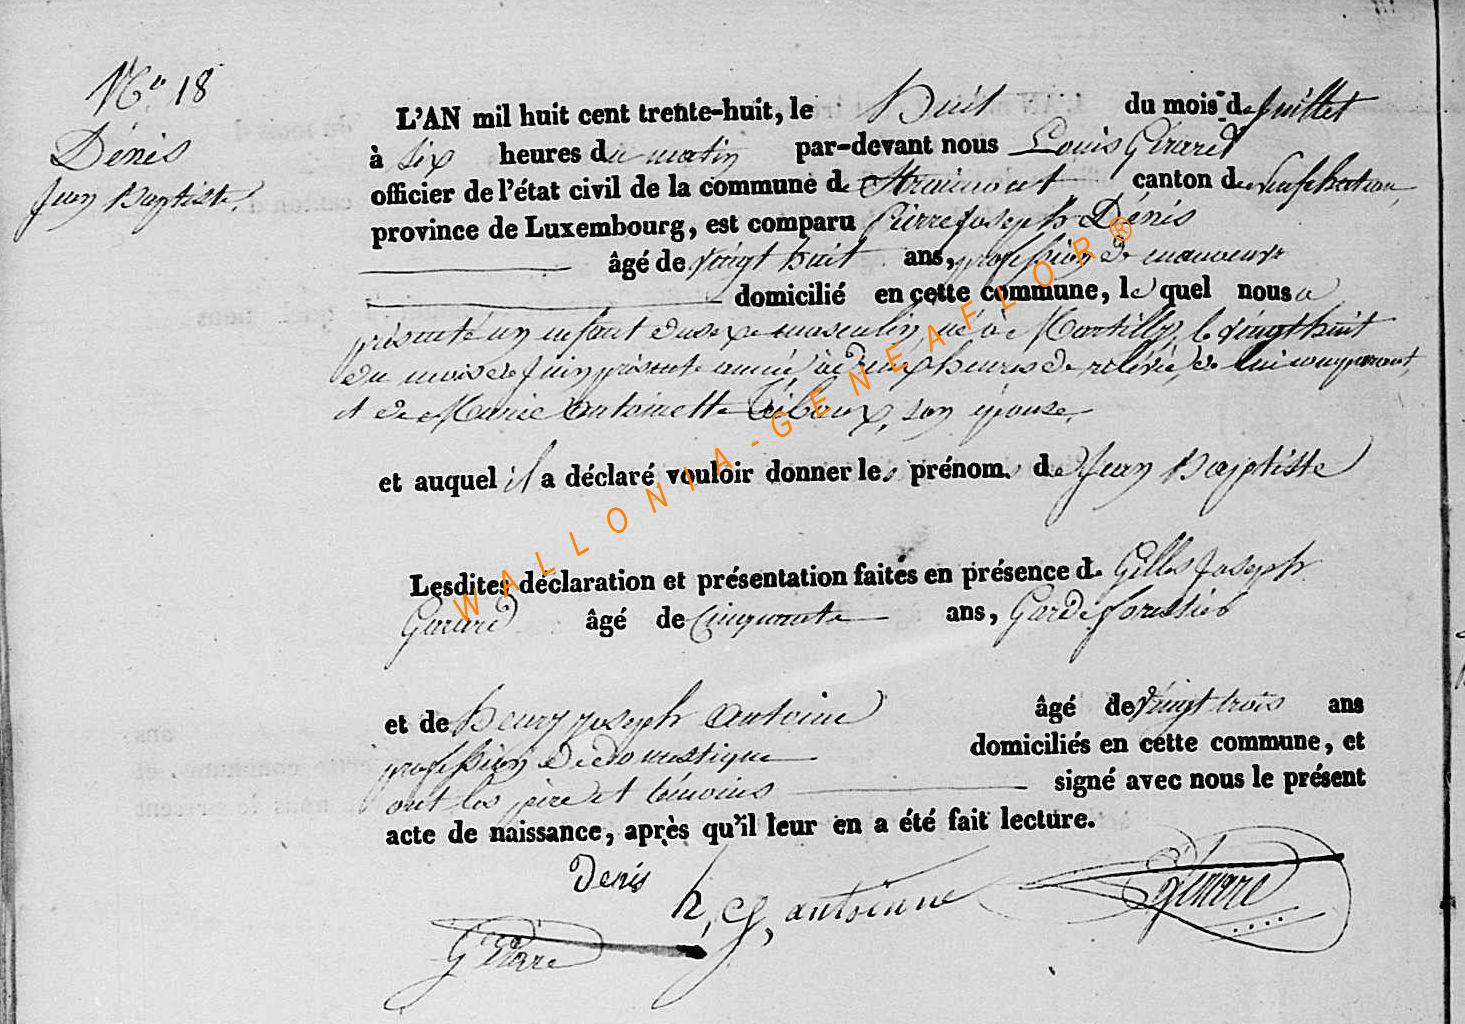 No 18
Dénis
Jean Baptiste.
L'AN mil huit cent trente-huit, le huit du mois de juillet
à six heures du matin par-devant nous Louis Gérard
officier de l'état civil de la commune de Straimont canton de neufchateau,
province de Luxembourg, est comparu Pierre joseph Dénis
âgé de vingt huit ans, profession de manoeuvre
domicilié en cette commune, le quel nous a
présenté un enfant du sexe masculin, né à Martilly, le vingt huit
du mois de juin présente année à deux heures de relevée, de lui comparant,
et de Marie Antoinette Thiboux, son épouse.
et auquel il a déclaré vouloir donner les prénoms de Jean Baptiste
Lesdites déclaration et présentation faites en présence de Gilles Joseph
Gérard âgé de Cinquante ans, Garde forestier
et de henry joseph Antoine âgé de vingt trois ans
profession de domestique domiciliés en cette commune, et
ont les père et témoins signé avec nous le présent
acte de naissance, après qu'il leur en a été fait lecture.
Denis
h, j, antoinne
Gérard
Gérard
WALLONIA-GENEAFLOR®